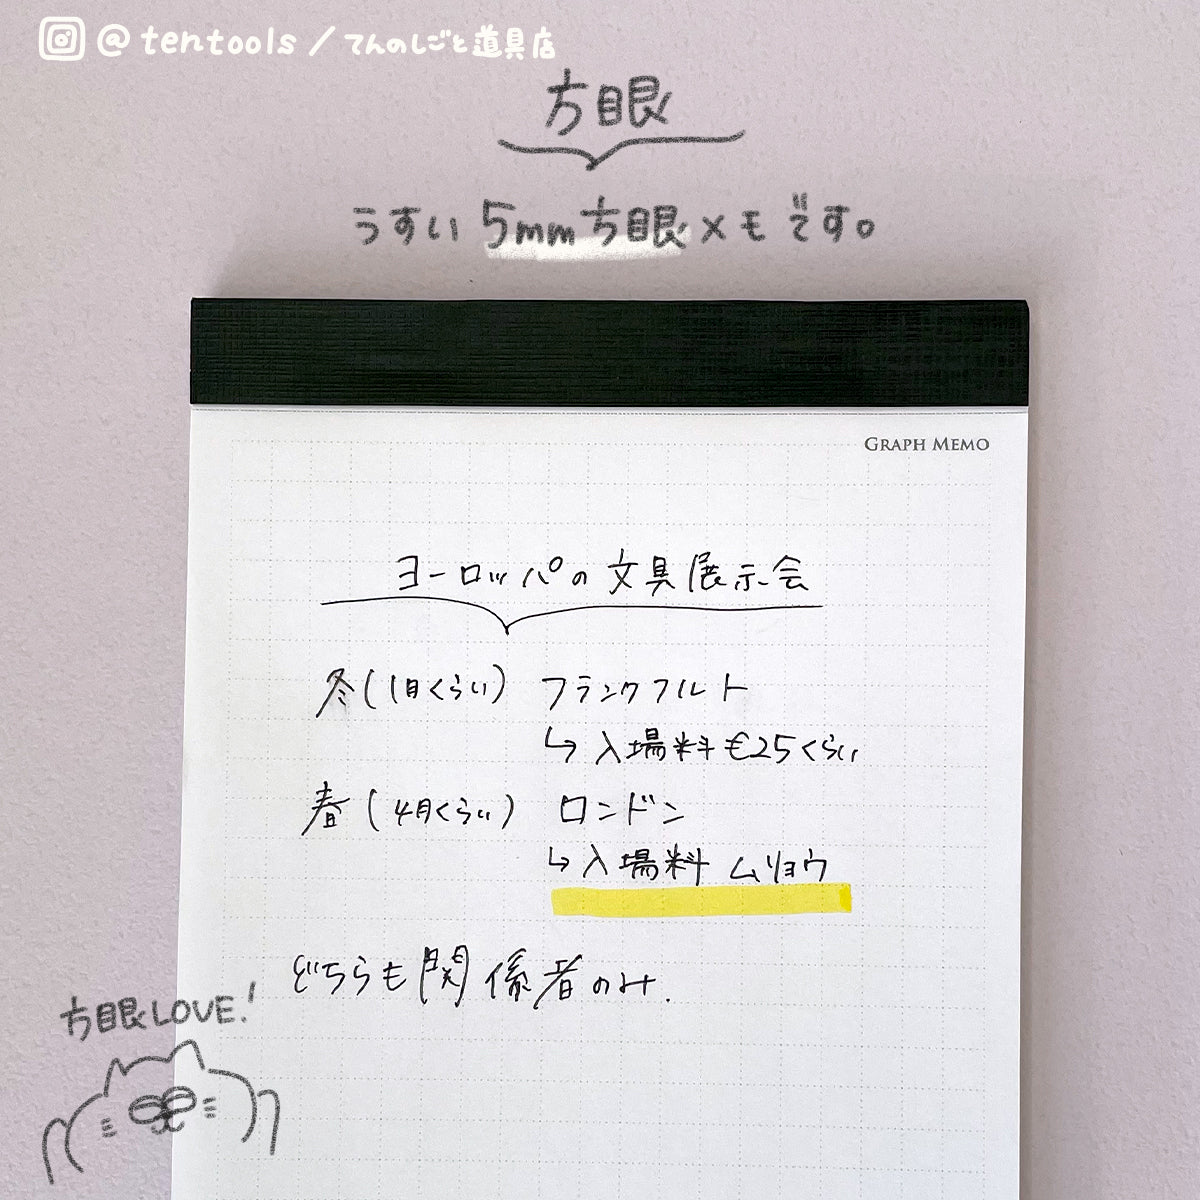 @tentools/てんのしごと道具店
方眼
うすい5mm方眼メモです。
GRAPH MEMO
ヨーロッパの文具展示会
冬(1月くらい) フランクフルト
↳入場料€25くらい
春(4月くらい) ロンドン
↳入場料 ムリョウ
どちらも関係者のみ.
方眼LOVE!